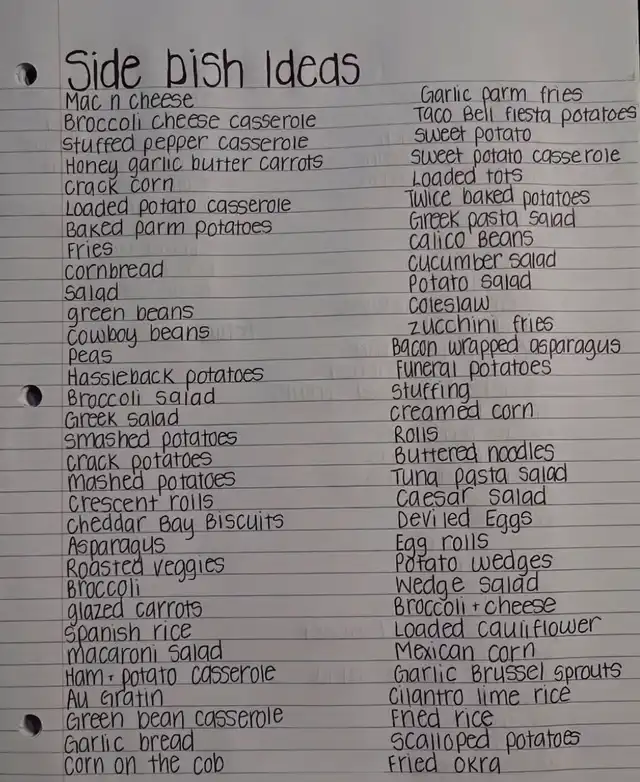 Side Dish Ideas
Mac n cheese
Broccoli cheese casserole
Stuffed pepper casserole
Honey garlic butter carrots
crack corn
Loaded potato casserole
Baked parm potatoes
Fries
cornbread
salad
green beans
cowboy beans
Peas
Hassleback potatoes
Broccoli salad
Greek salad
smashed potatoes
crack potatoes
mashed potatoes
crescent rolls
cheddar Bay Biscuits
Asparagus
Roasted veggies
Broccoli
glazed carrots
Spanish rice
macaroni salad
Ham + potato casserole
Au Gratin
Green bean casserole
Garlic bread
corn on the cob
Garlic parm fries
Taco Bell fiesta potatoes
sweet potato
sweet potato casserole
Loaded tots
Twice baked potatoes
Greek pasta salad
calico Beans
cucumber salad
Potato salad
coleslaw
zucchini fries
Bacon wrapped asparagus
Funeral potatoes
stuffing
creamed corn
Rolls
Buttered noodles
Tuna pasta salad
Caesar salad
Deviled Eggs
Egg rolls
Potato wedges
Wedge salad
Broccoli + cheese
Loaded cauliflower
Mexican corn
Garlic Brussel sprouts
cilantro lime rice
Fried rice
scalloped potatoes
Fried okra